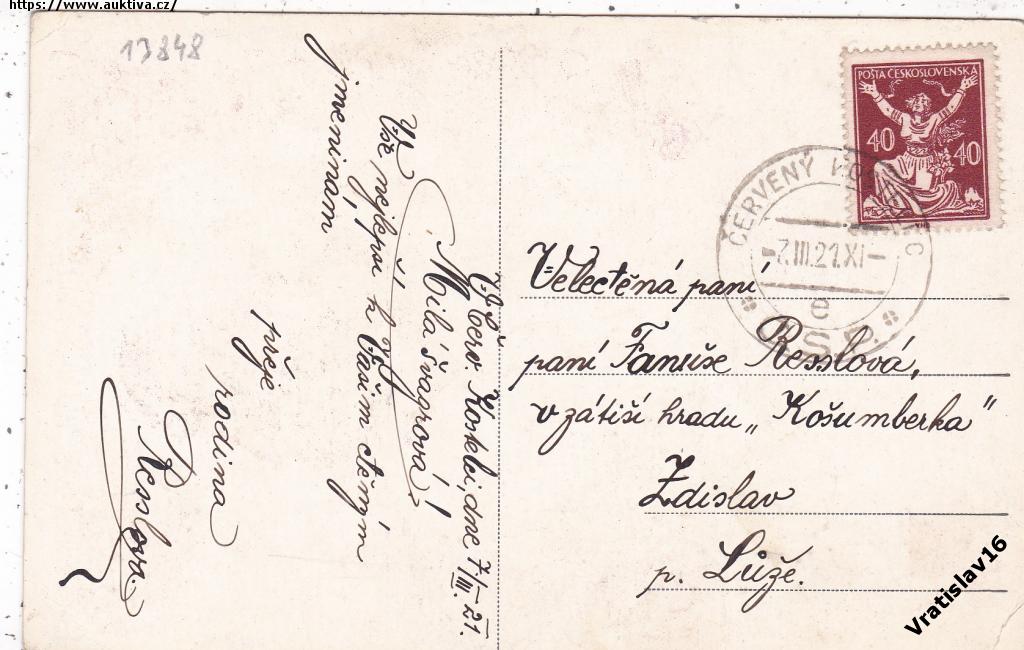 https://www.auktiva.cz/
13848
V Červ. Kostelci, dne 7/III. - 21.
Milá švagrová!
Vše nejlepší k Vašim ctěným
jmeninám,
přeje
rodina
Resslova.
POŠTA ČESKOSLOVENSKÁ
40 40
ČERVENÝ
-7.III.21.XI-
e
Č.S.P.
Velectěná paní
paní Fanuše Resslová,
v zátiší hradu „Košumberka"
Zdislav
p. Lůže.
Vratislav16